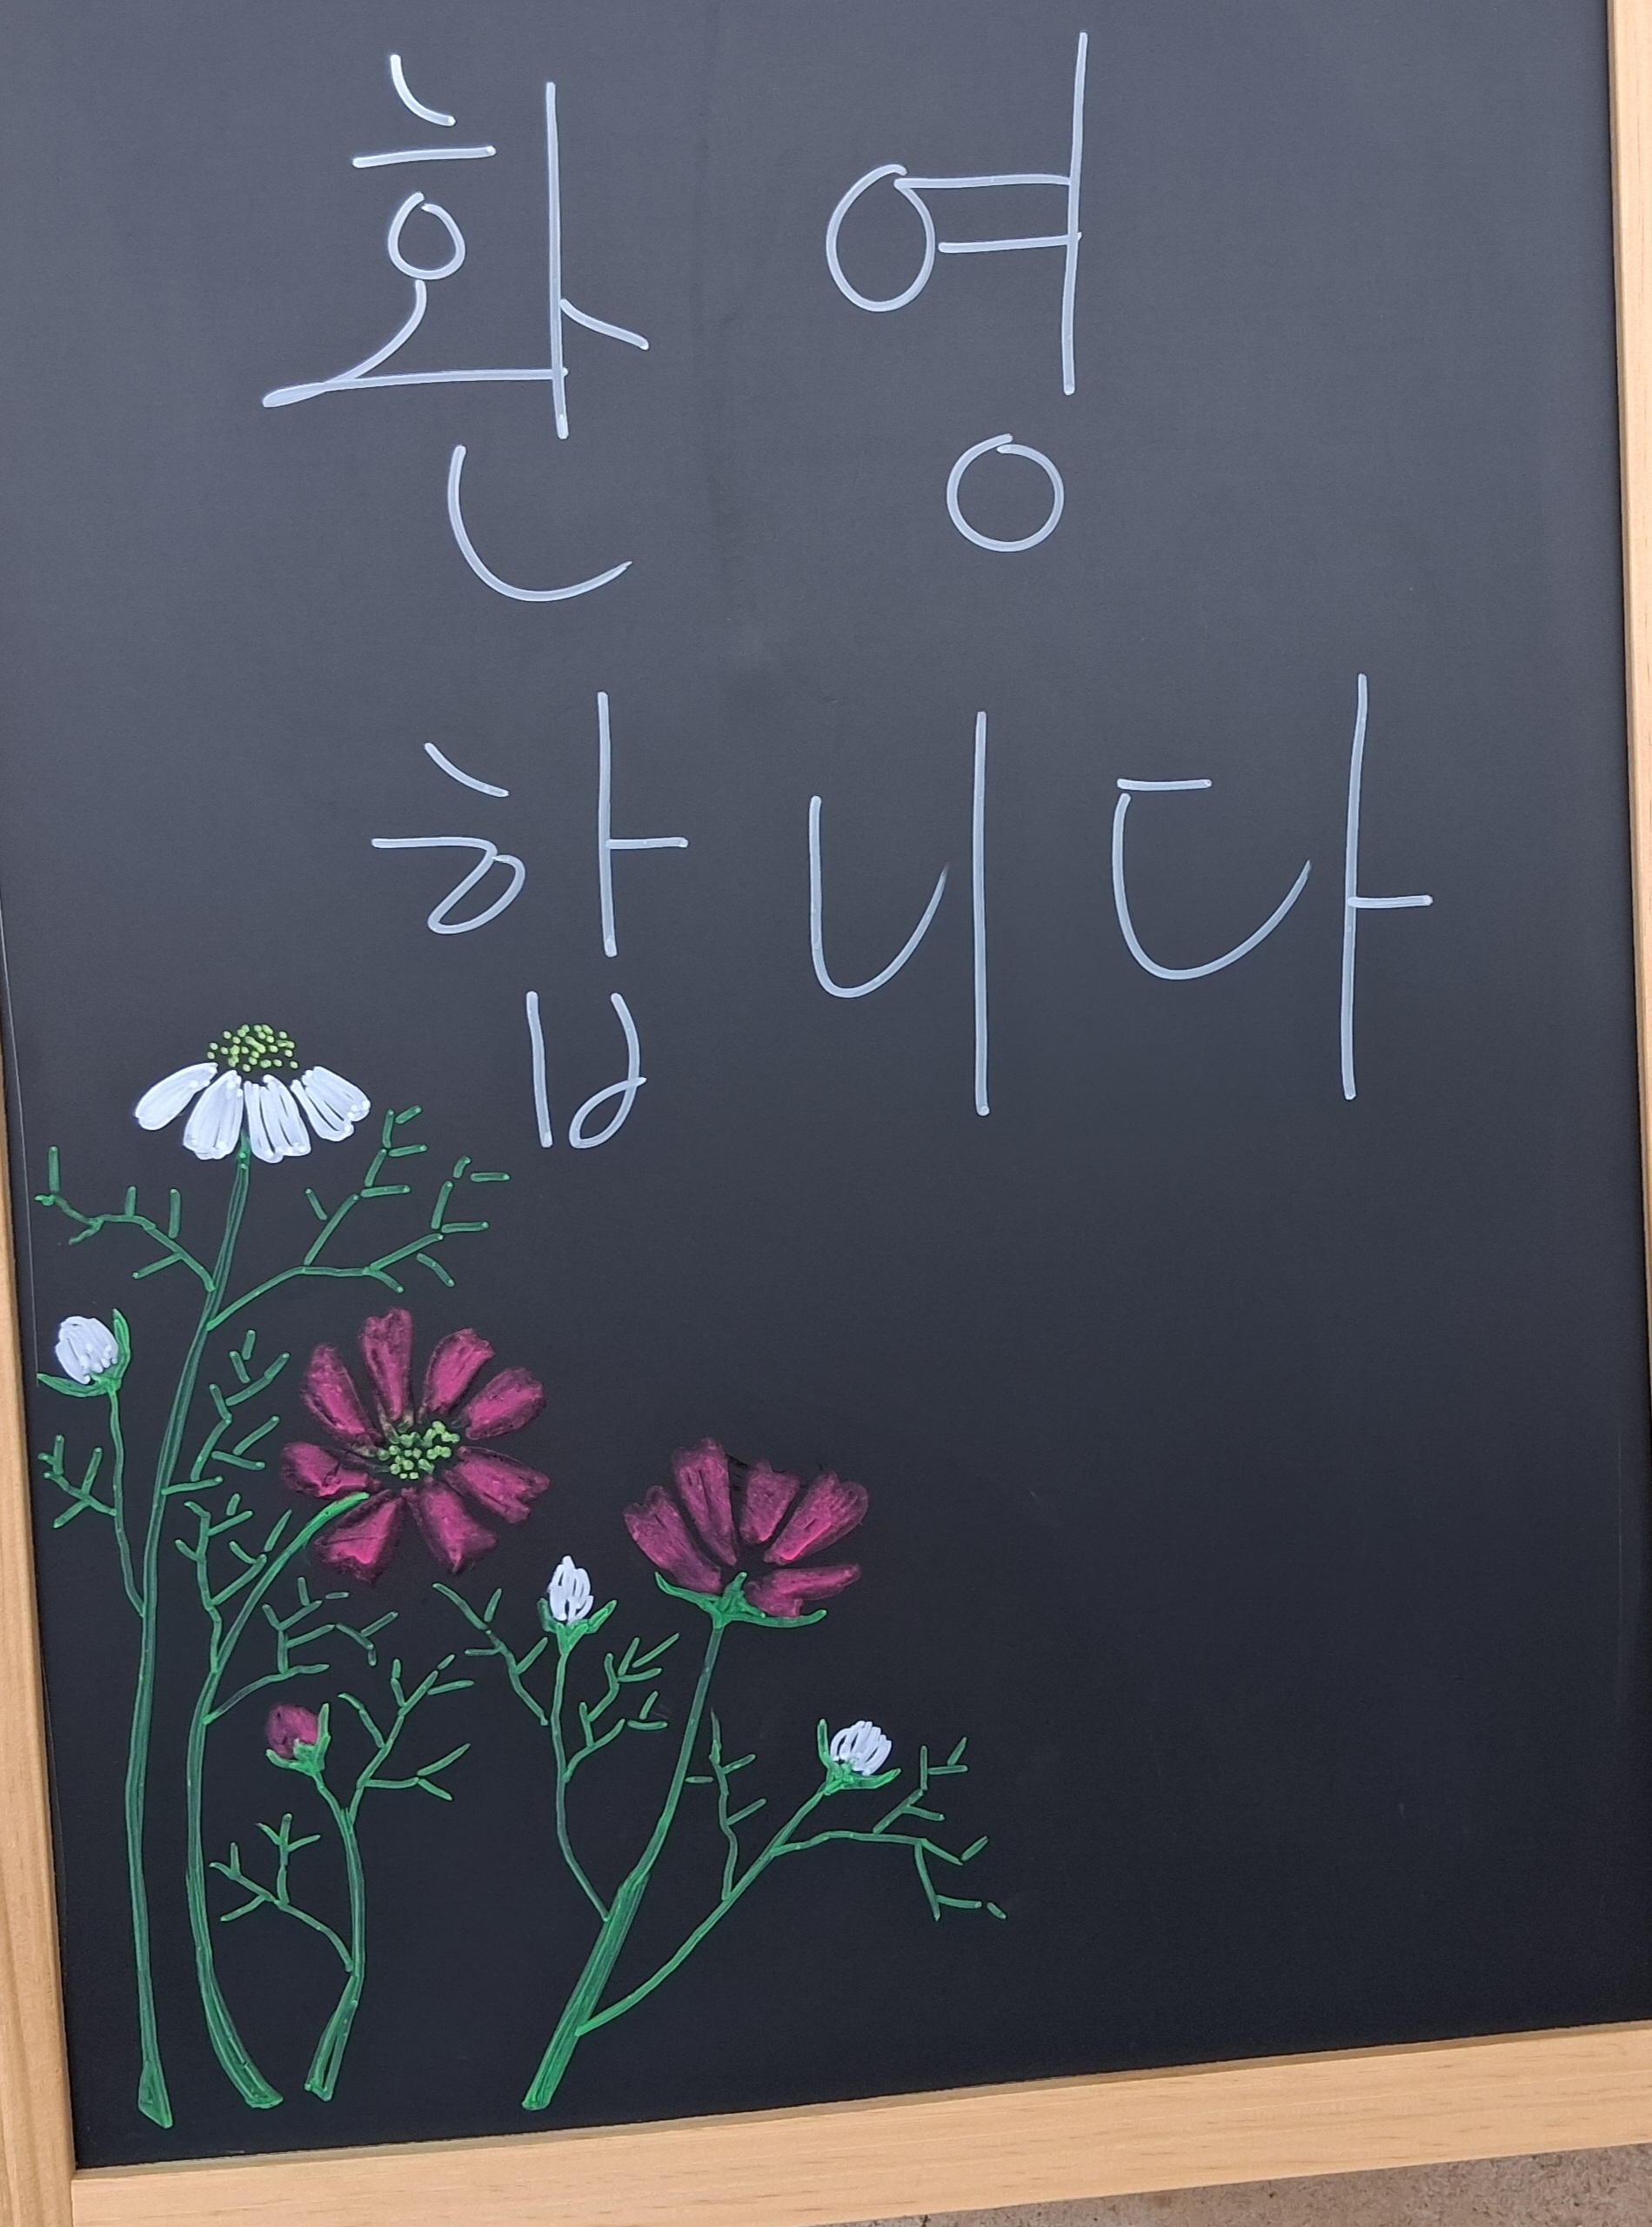 환영
합니다